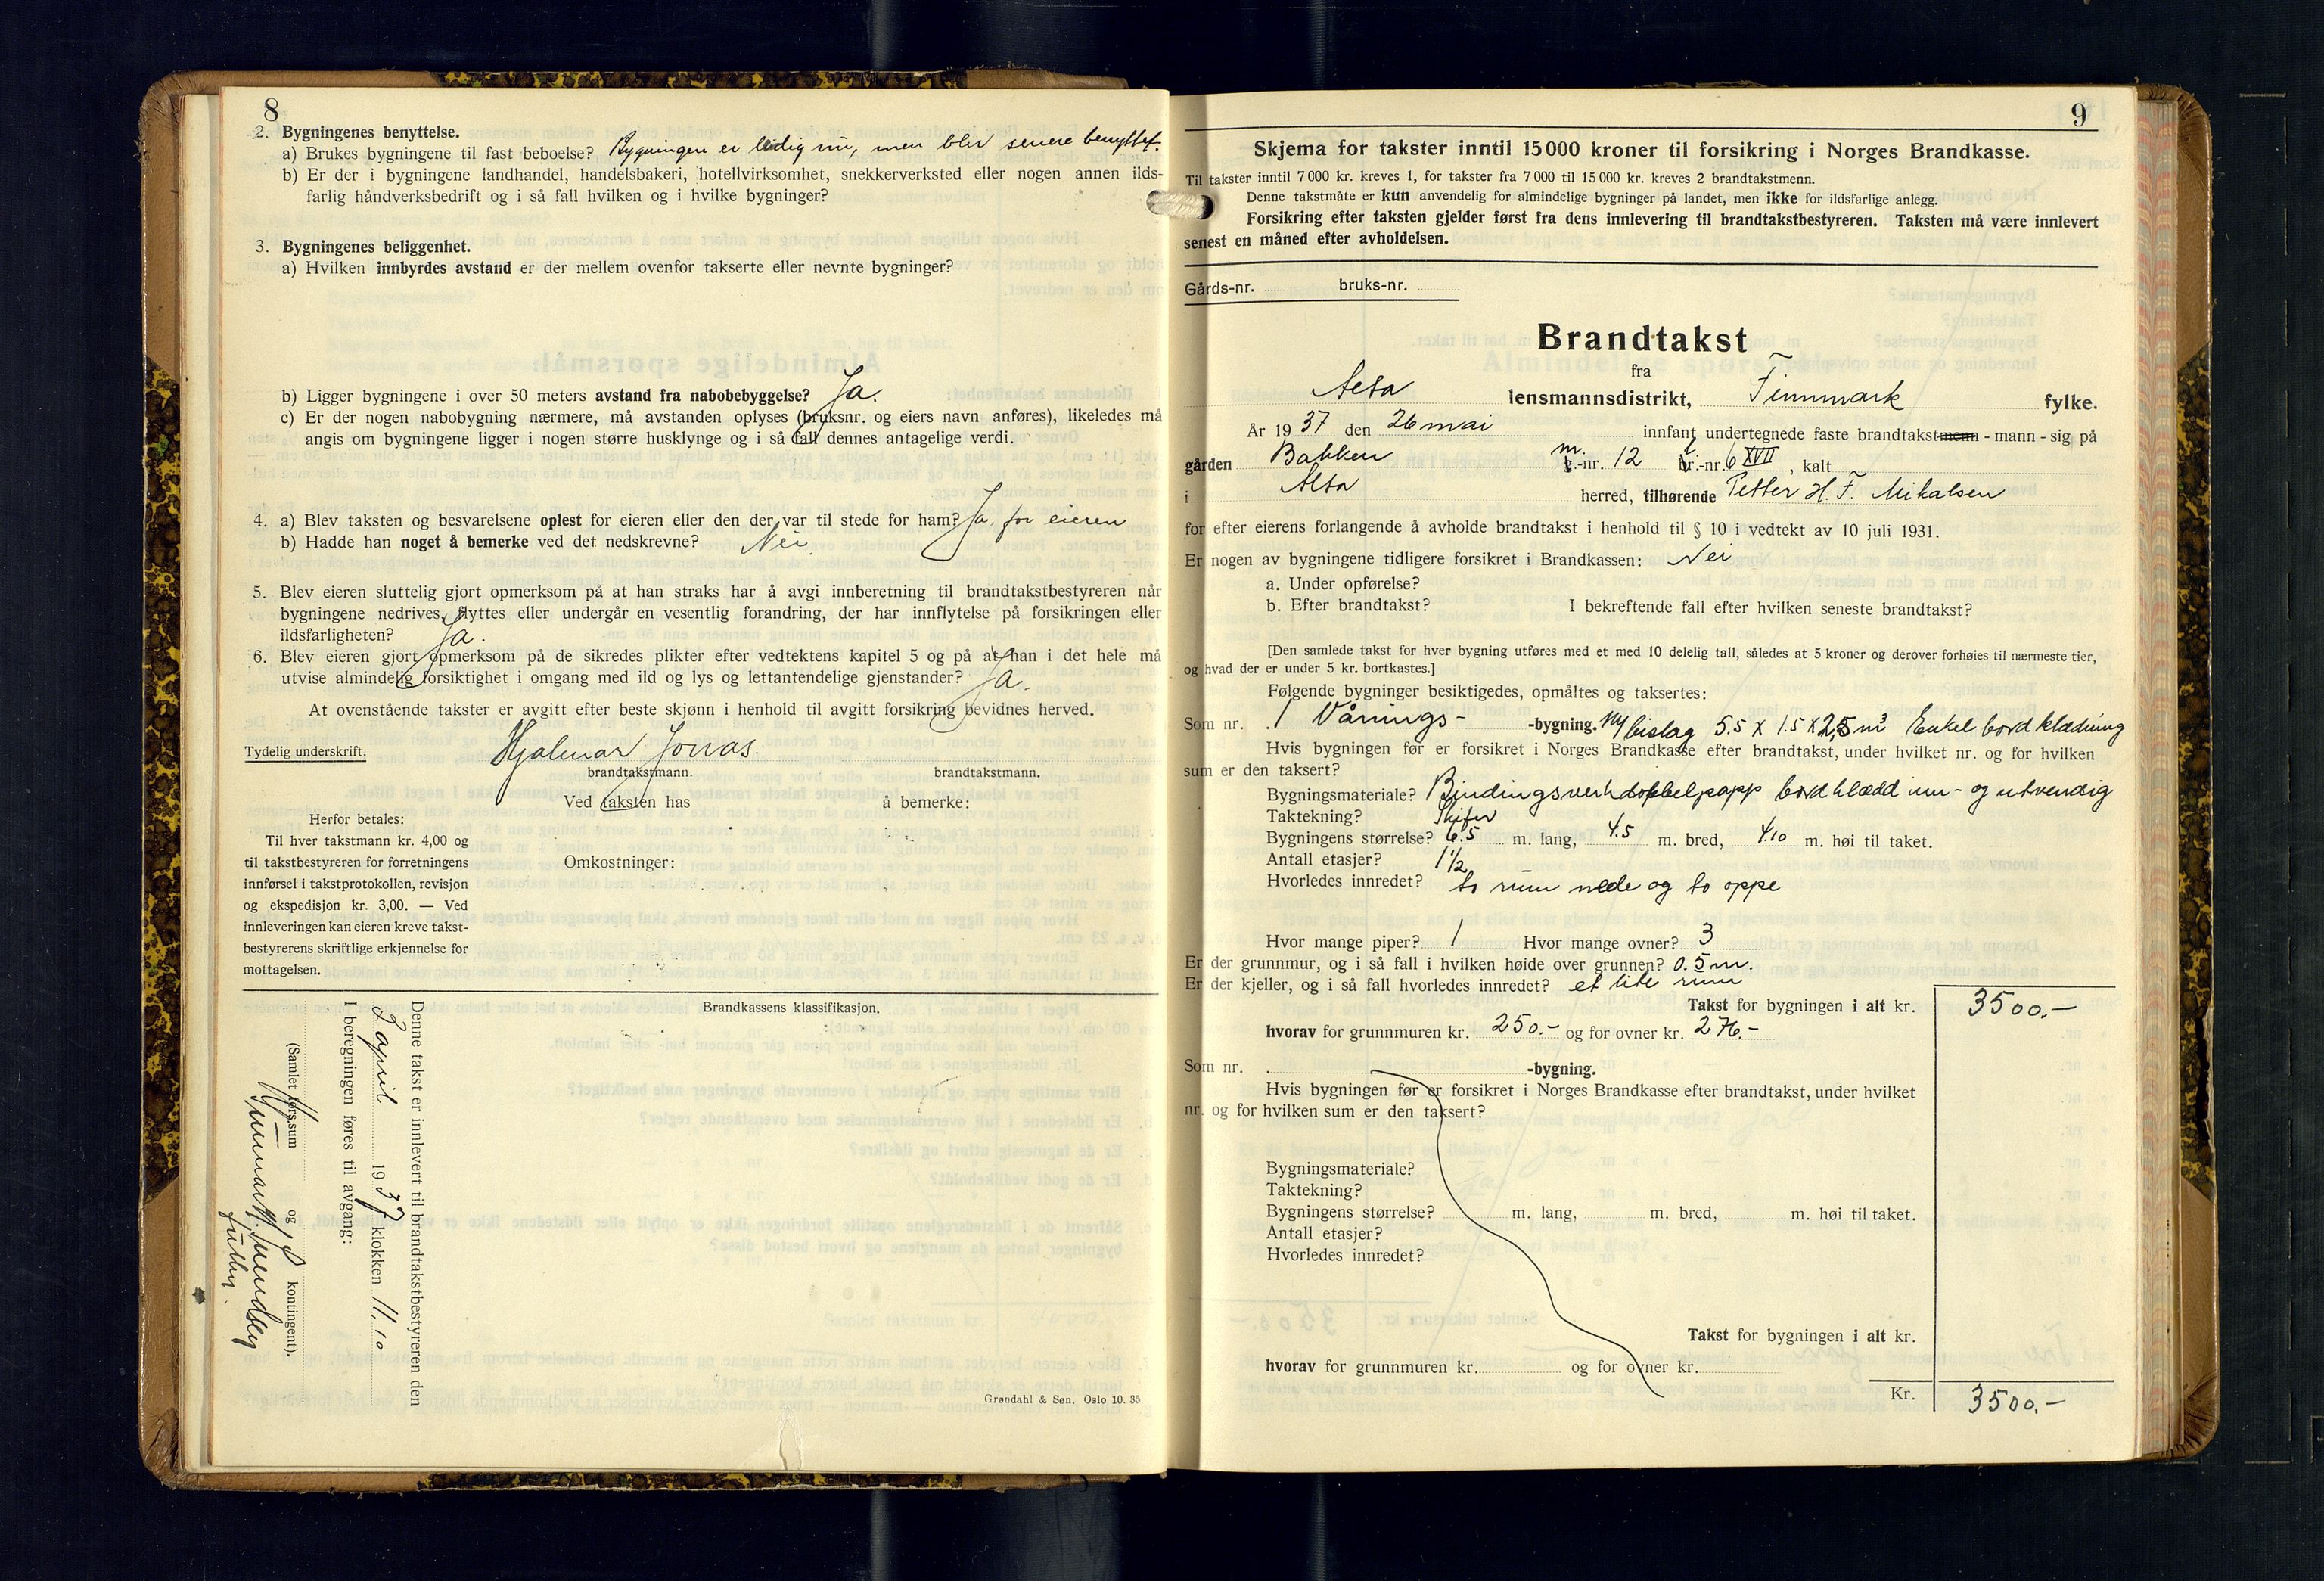 8
2. Bygningenes benyttelse.
a) Brukes bygningene til fast beboelse? Bygningen er ledig nu, men blir senere benyttet.
b) Er der i bygningene landhandel, handelsbakeri, hotellvirksomhet, snekkerverksted eller nogen annen ilds-
farlig håndverksbedrift og i så fall hvilken og i hvilke bygninger?
3. Bygningenes beliggenhet.
a) Hvilken innbyrdes avstand er der mellem ovenfor takserte eller nevnte bygninger?
b) Ligger bygningene i over 50 meters avstand fra nabobebyggelse? Ja.
c) Er der nogen nabobygning nærmere, må avstanden oplyses (bruksnr. og eiers navn anføres), likeledes må
angis om bygningene ligger i nogen større husklynge og i så fall dennes antagelige verdi.
4. a) Blev taksten og besvarelsene oplest for eieren eller den der var til stede for ham? Ja, for eieren
b) Hadde han noget å bemerke ved det nedskrevne? Nei.
5. Blev eieren sluttelig gjort opmerksom på at han straks har å avgi innberetning til brandtakstbestyreren når
bygningene nedrives, flyttes eller undergår en vesentlig forandring, der har innflytelse på forsikringen eller
ildsfarligheten? Ja.
6. Blev eieren gjort opmerksom på de sikredes plikter efter vedtektens kapitel 5 og på at han i det hele må
utvise almindelig forsiktighet i omgang med ild og lys og lettantendelige gjenstander? Ja.
At ovenstående takster er avgitt efter beste skjønn i henhold til avgitt forsikring bevidnes herved.
Tydelig underskrift. Hjalmar Jonas.
brandtakstmann. brandtakstmann.
Ved taksten has å bemerke:
Herfor betales:
Til hver takstmann kr. 4,00 og
til takstbestyreren for forretningens
innførsel i takstprotokollen, revisjon
og ekspedisjon kr. 3,00. — Ved
innleveringen kan eieren kreve takst-
bestyrerens skriftlige erkjennelse for
mottagelsen.
Omkostninger:
Brandkassens klassifikasjon.
Denne takst er innlevert til brandtakstbestyreren den
2 april 1937 klokken 11.10
I beregningen føres til avgang:
(Samlet fors.sum og kontingent).
Grøndahl & Søn. Oslo 10. 35
9
Skjema for takster inntil 15 000 kroner til forsikring i Norges Brandkasse.
Til takster inntil 7 000 kr. kreves 1, for takster fra 7 000 til 15 000 kr. kreves 2 brandtakstmenn.
Denne takstmåte er kun anvendelig for almindelige bygninger på landet, men ikke for ildsfarlige anlegg.
Forsikring efter taksten gjelder først fra dens innlevering til brandtakstbestyreren. Taksten må være innlevert
senest en måned efter avholdelsen.
Gårds-nr. bruks-nr.
Brandtakst
fra
Alta lensmannsdistrikt, Finnmark fylke.
År 1937 den 26 mai innfant undertegnede faste brandtakstmenn - mann - sig på
gården Bakken m.-nr. 12 -nr. 6 XVII, kalt
i Alta herred, tilhørende Petter H. F. Mikalsen
for efter eierens forlangende å avholde brandtakst i henhold til § 10 i vedtekt av 10 juli 1931.
Er nogen av bygningene tidligere forsikret i Brandkassen: Nei
a. Under opførelse?
b. Efter brandtakst? I bekreftende fall efter hvilken seneste brandtakst?
[Den samlede takst for hver bygning utføres med et med 10 delelig tall, således at 5 kroner og derover forhøies til nærmeste tier,
og hvad der er under 5 kr. bortkastes.]
Følgende bygninger besiktigedes, opmåltes og taksertes:
Som nr. 1 Vånings- -bygning. ny bislag 5.5 x 1.5 x 2,5 m³ Enkel bordklædning
Hvis bygningen før er forsikret i Norges Brandkasse efter brandtakst, under hvilket nr. og for hvilken
sum er den taksert?
Bygningsmateriale? Bindingsverk dobbelpapp bordklædd inn- og utvendig
Taktekning? Skifer
Bygningens størrelse? 6.5 m. lang, 4.5 m. bred, 4.10 m. høi til taket.
Antall etasjer? 1 1/2
Hvorledes innredet? to rum nede og to oppe
Hvor mange piper? 1 Hvor mange ovner? 3
Er der grunnmur, og i så fall i hvilken høide over grunnen? 0.5 m.
Er der kjeller, og i så fall hvorledes innredet? et lite rum
Takst for bygningen i alt kr. 3500.-
hvorav for grunnmuren kr. 250.- og for ovner kr. 276.-
Som nr. -bygning.
Hvis bygningen før er forsikret i Norges Brandkasse efter brandtakst, under hvilket
nr. og for hvilken sum er den taksert?
Bygningsmateriale?
Taktekning?
Bygningens størrelse? m. lang, m. bred, m. høi til taket.
Antall etasjer?
Hvorledes innredet?
Takst for bygningen i alt kr.
hvorav for grunnmuren kr. og for ovner kr.
Kr. 3500.-